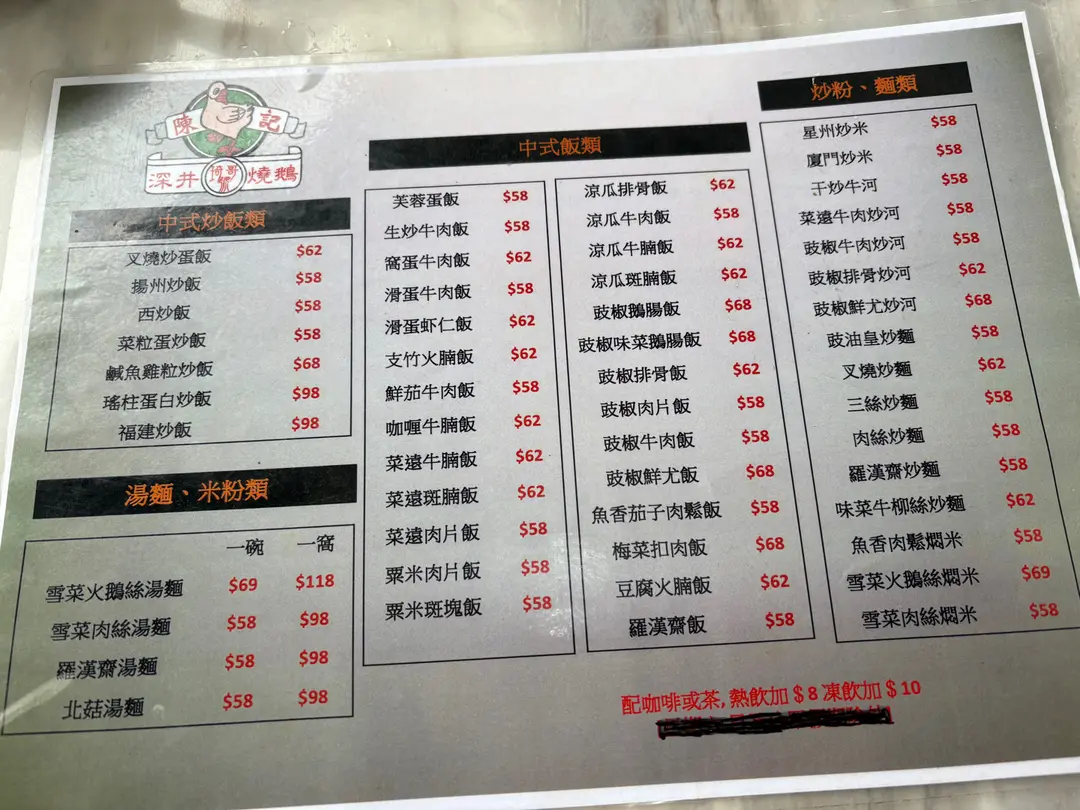 陳記
深井 琦哥號 燒鵝
中式炒飯類
叉燒炒蛋飯 $62
揚州炒飯 $58
西炒飯 $58
菜粒蛋炒飯 $58
鹹魚雞粒炒飯 $68
瑤柱蛋白炒飯 $98
福建炒飯 $98
湯麵、米粉類
一碗 一窩
雪菜火鵝絲湯麵 $69 $118
雪菜肉絲湯麵 $58 $98
羅漢齋湯麵 $58 $98
北菇湯麵 $58 $98
中式飯類
芙蓉蛋飯 $58
生炒牛肉飯 $58
窩蛋牛肉飯 $62
滑蛋牛肉飯 $58
滑蛋虾仁飯 $62
支竹火腩飯 $62
鮮茄牛肉飯 $58
咖喱牛腩飯 $62
菜遠牛腩飯 $62
菜遠斑腩飯 $62
菜遠肉片飯 $58
粟米肉片飯 $58
粟米斑塊飯 $58
涼瓜排骨飯 $62
涼瓜牛肉飯 $58
涼瓜牛腩飯 $62
涼瓜斑腩飯 $62
豉椒鵝腸飯 $68
豉椒味菜鵝腸飯 $68
豉椒排骨飯 $62
豉椒肉片飯 $58
豉椒牛肉飯 $58
豉椒鮮尤飯 $68
魚香茄子肉鬆飯 $58
梅菜扣肉飯 $68
豆腐火腩飯 $62
羅漢齋飯 $58
炒粉、麵類
星州炒米 $58
廈門炒米 $58
干炒牛河 $58
菜遠牛肉炒河 $58
豉椒牛肉炒河 $58
豉椒排骨炒河 $62
豉椒鮮尤炒河 $68
豉油皇炒麵 $58
叉燒炒麵 $62
三絲炒麵 $58
肉絲炒麵 $58
羅漢齋炒麵 $58
味菜牛柳絲炒麵 $62
魚香肉鬆燜米 $58
雪菜火鵝絲燜米 $69
雪菜肉絲燜米 $58
配咖啡或茶, 熱飲加 $ 8 凍飲加 $ 10